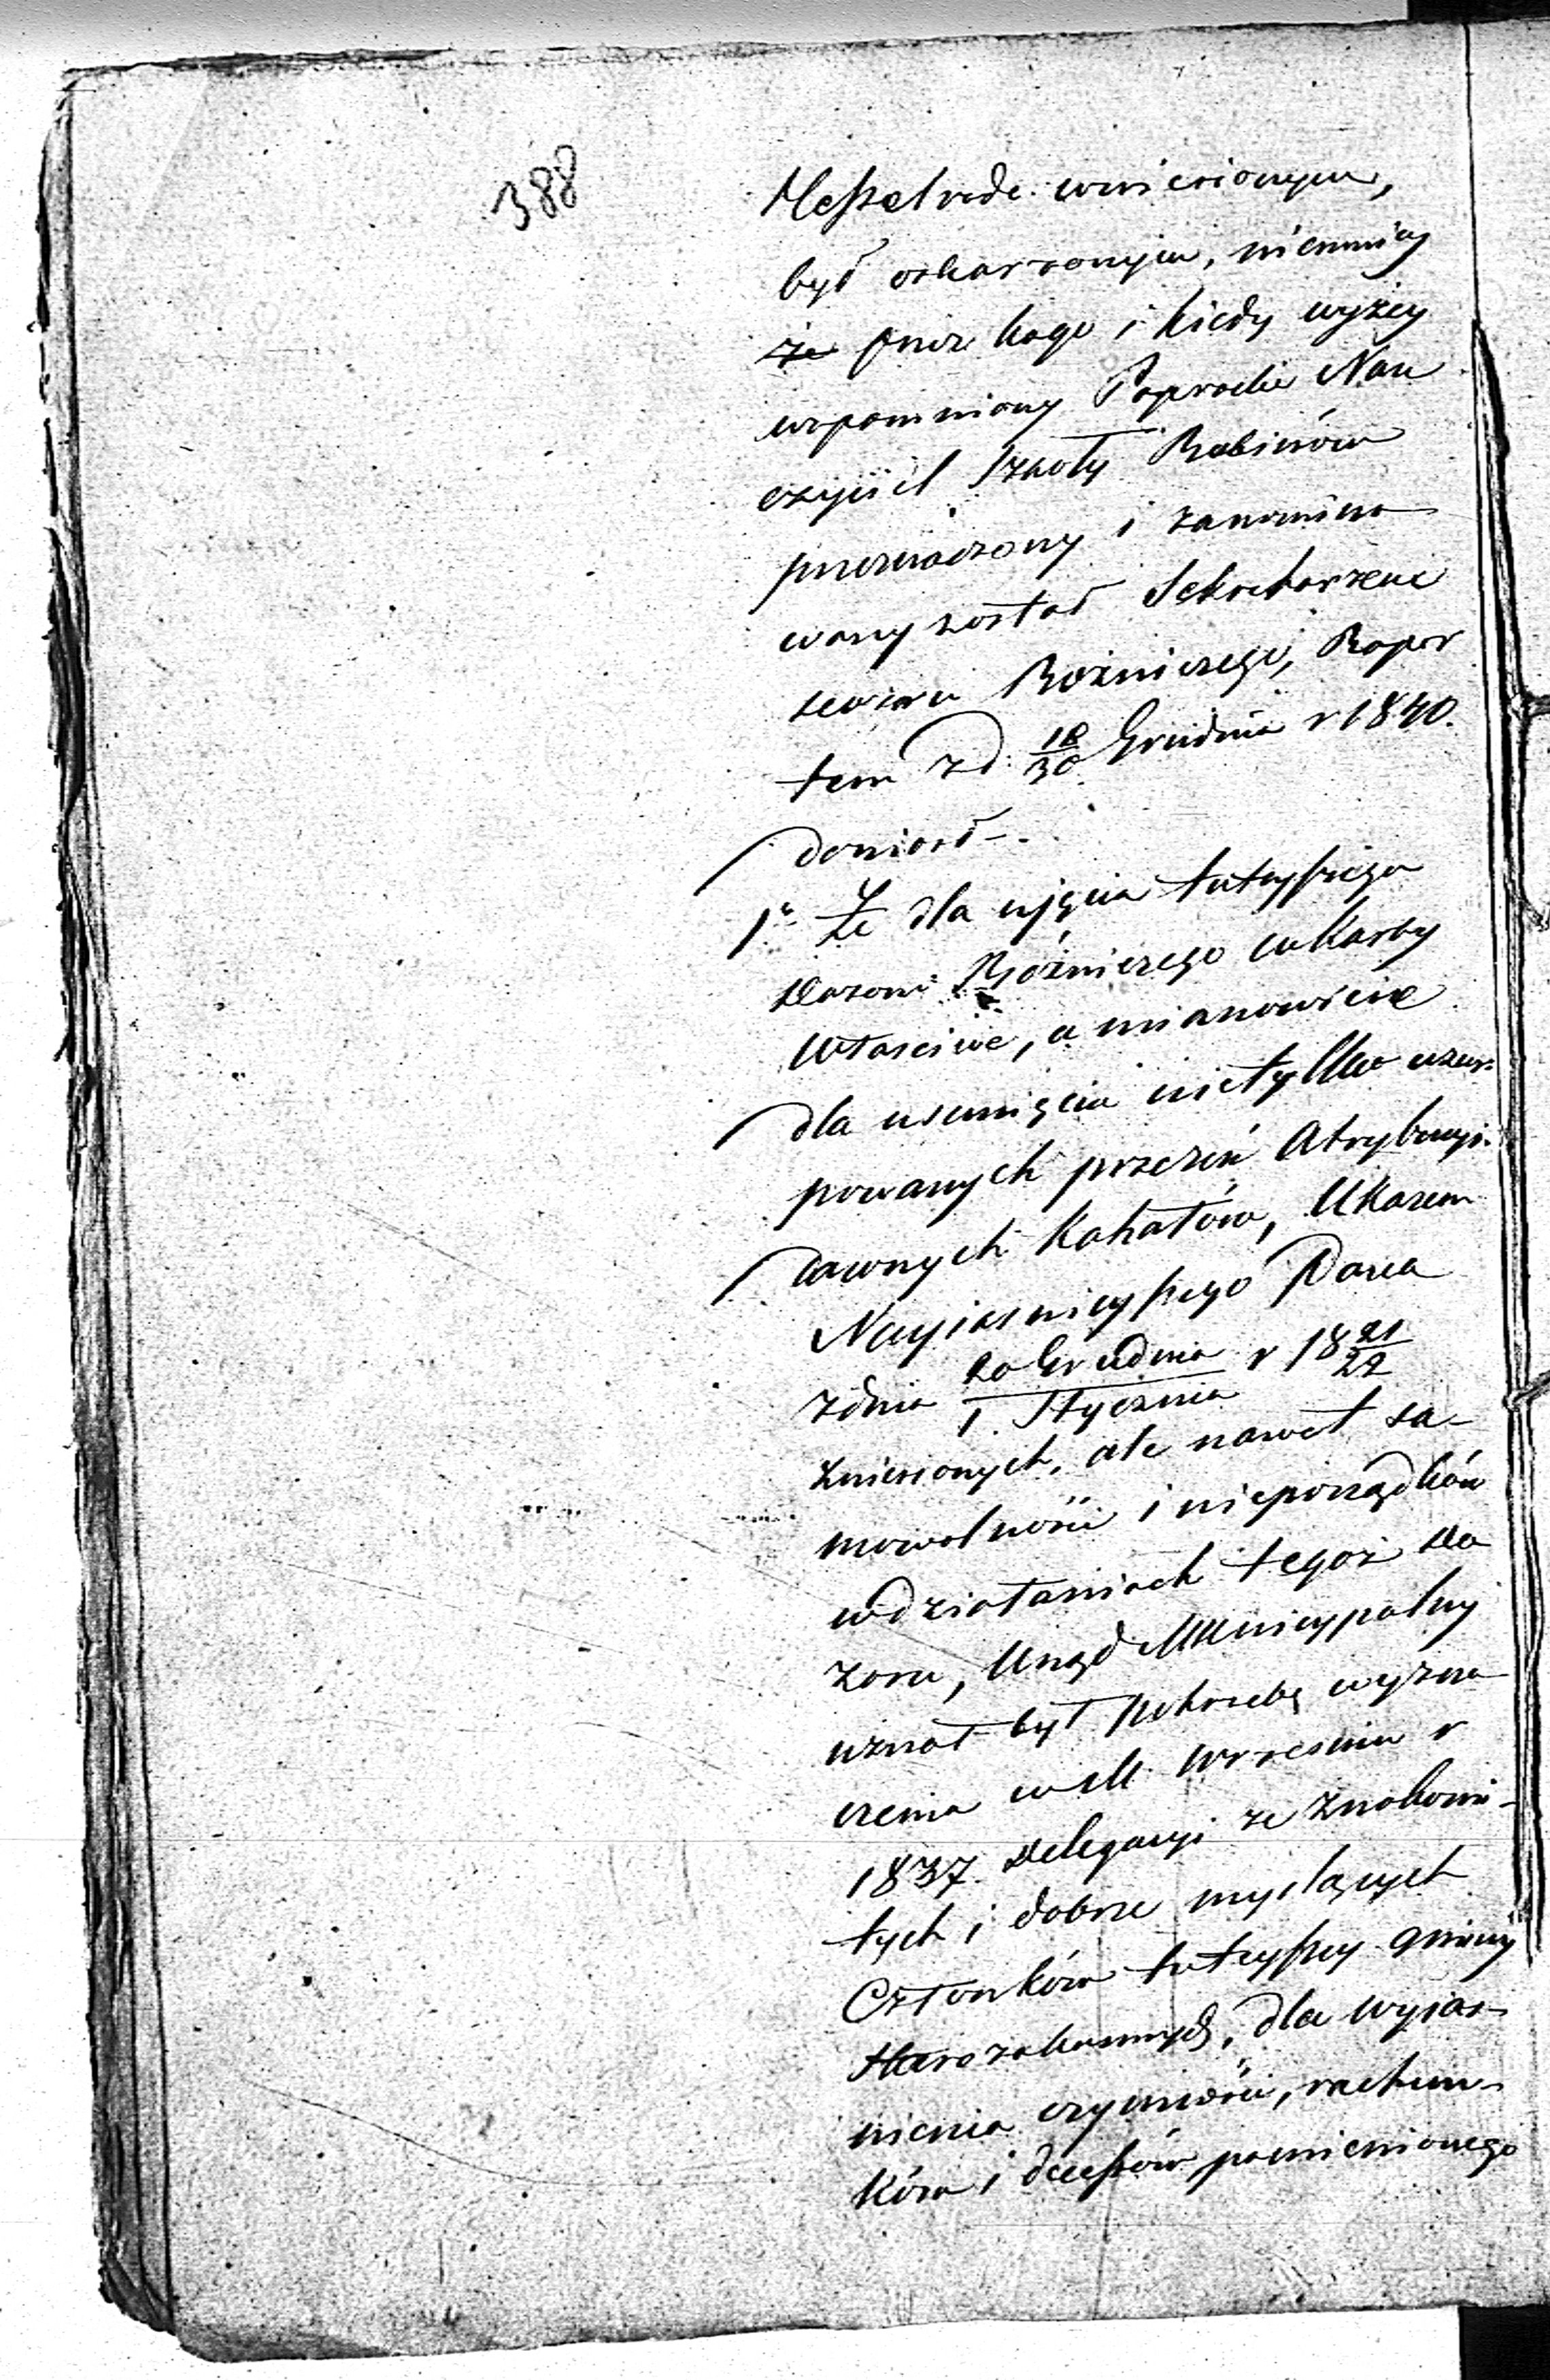 388
Nesselrode wniesionym,
był oskarzonym, niemniey
że przez kogo i kiedy wyżey
wspomniony Paprocki Nau
czyciel Szkoły Rabinów
przeznaczony i zanomino
wany został Sekretarzem
Dozoru Bożniczego, Rapor
tem z d. 18/30 Grudnia r 1840.
doniosł -.
1° Że dla ujęcia tuteyszego
Dozoru Bóżniczego w karby
właściwe, a mianowicie
dla usunięcia nietylko uzur-
powanych przezeń Atrybucyi
dawnych Kahałów, Ukazem
Nayiaśnieyszego Pana
z dnia 20 Grudnia/1 Stycznia r 18 21/22
zniesionych, ale nawet sa-
mowolności i nieporządków
w działaniach tegoż Do
zoru, Urząd Municypalny
uznał był potrzebę wyzna
czenia w M. Wrześniu r
1837. Delegacyi ze znakomi-
tych i dobrze myślących
Członków tuteyszey gminy
Starozakonnych, dla wyjaś-
nienia czynności, rachun-
ków i dowodów pomienionego